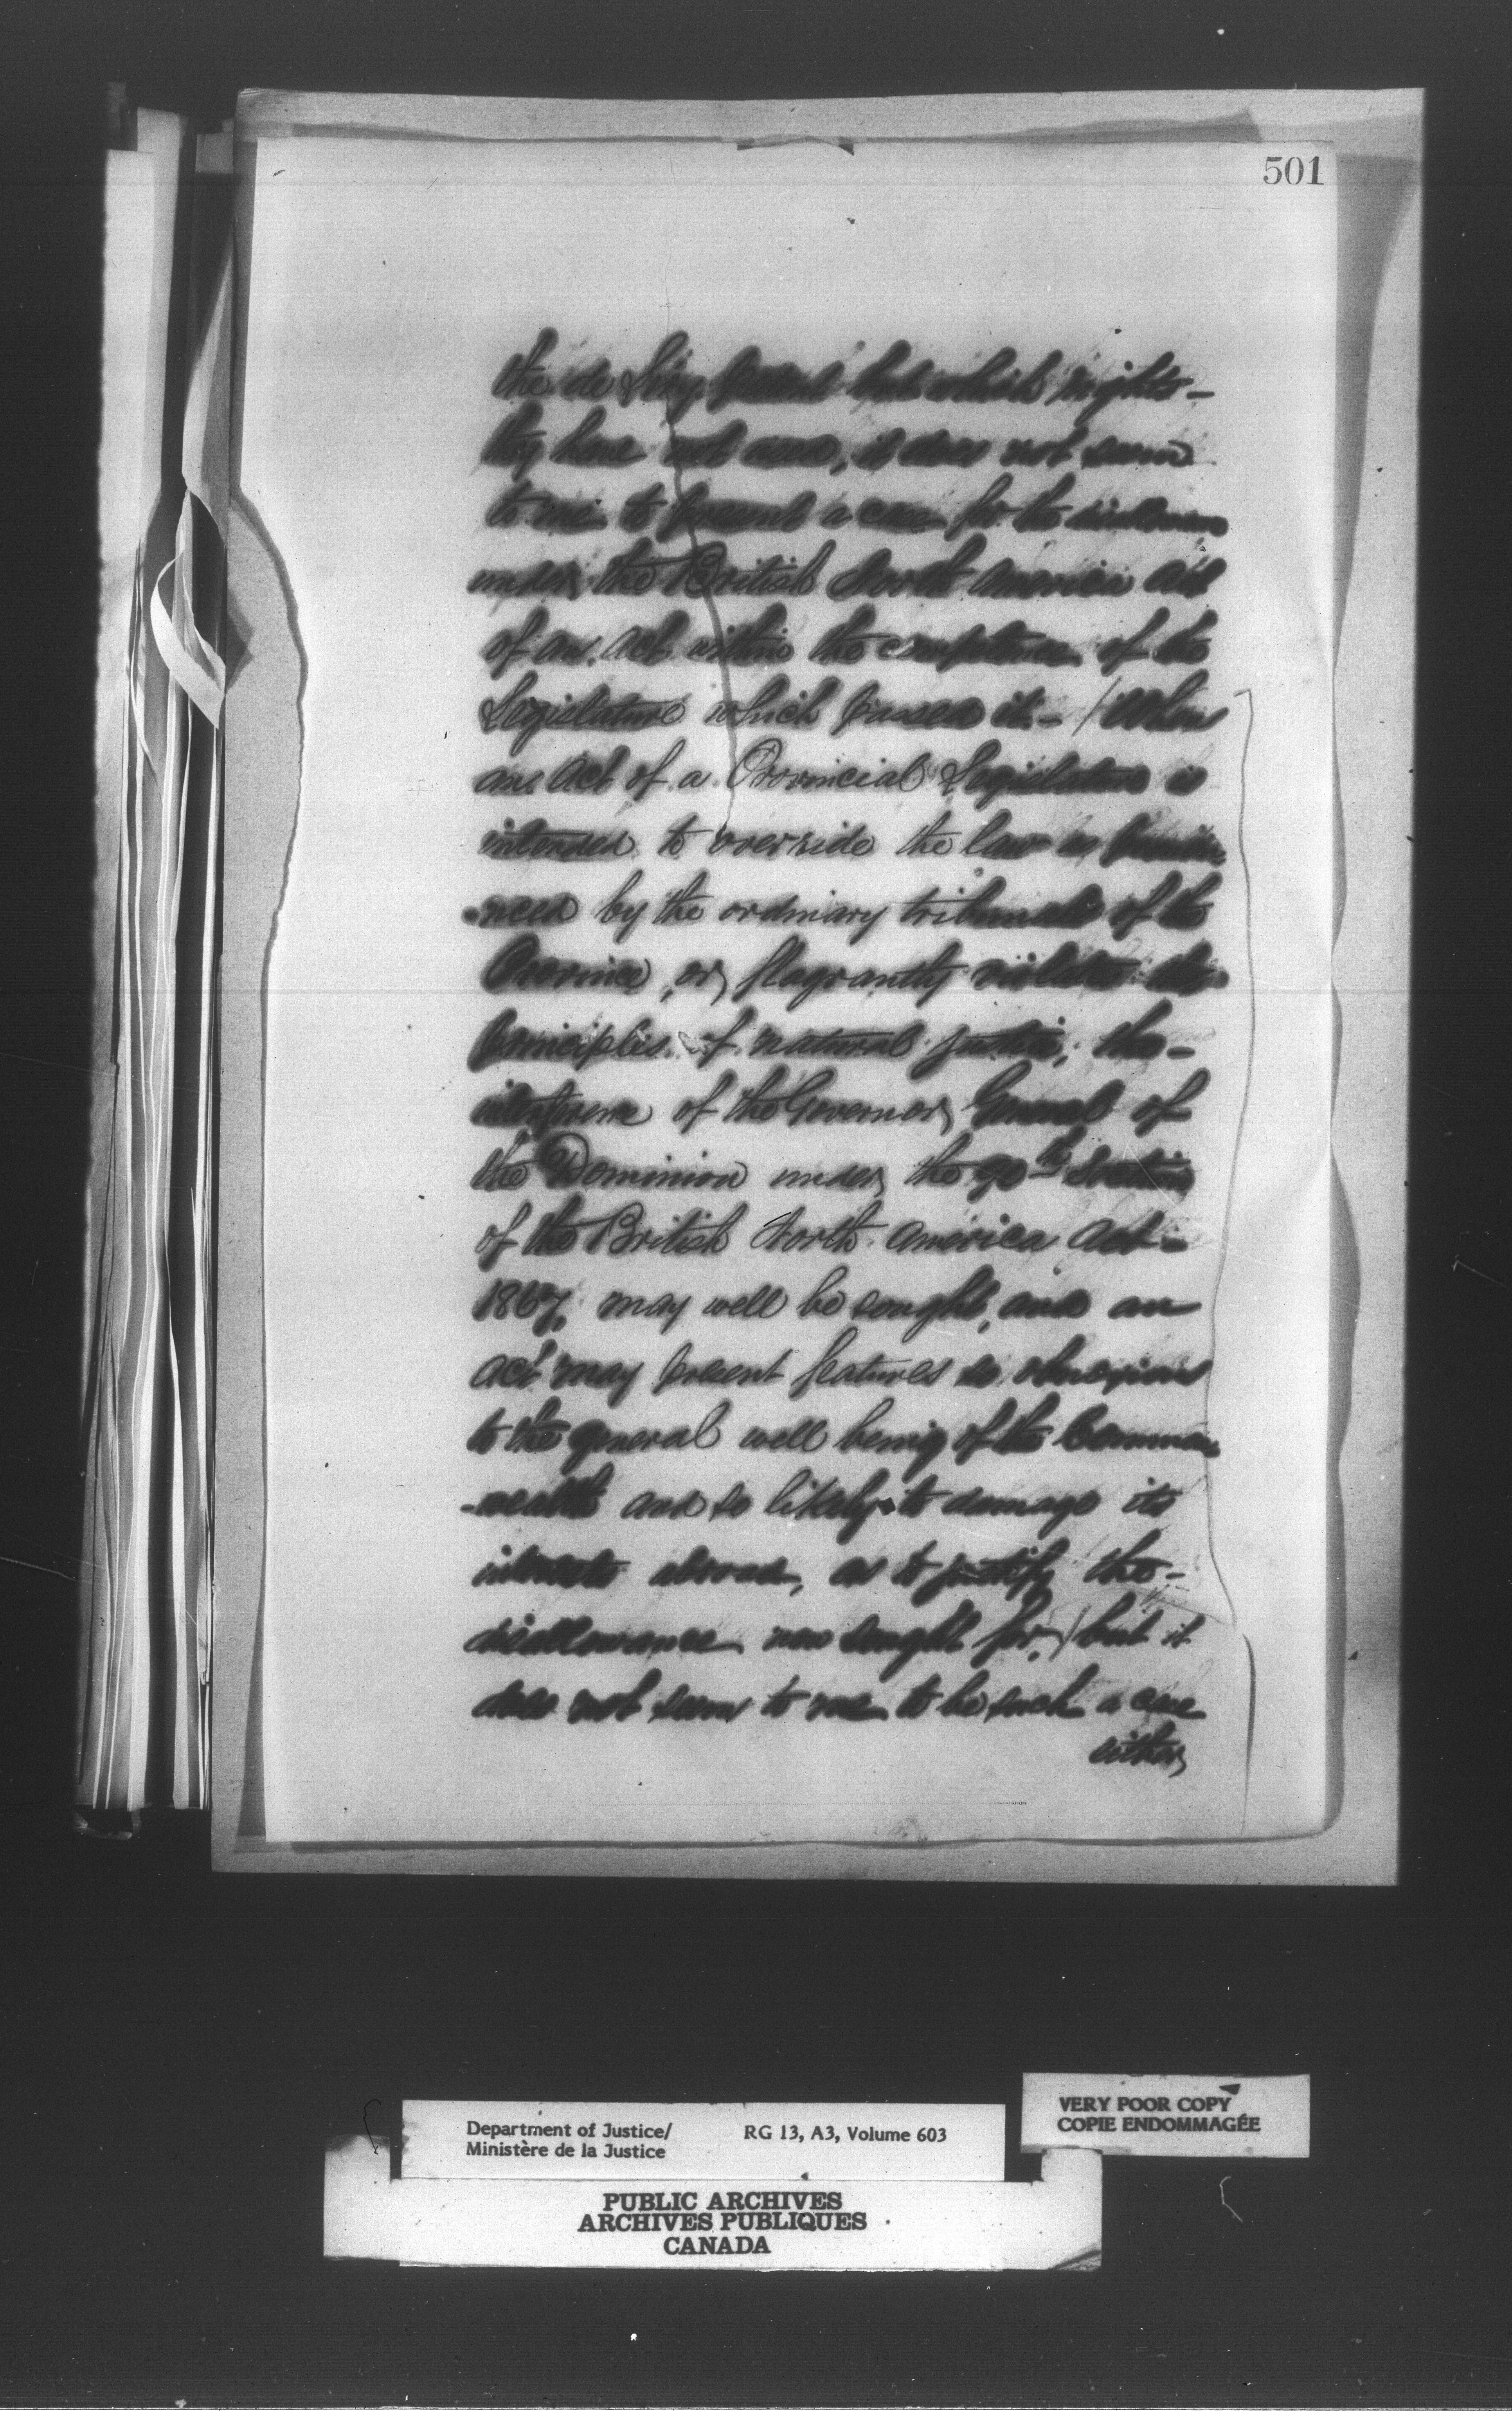 501
the de Léry Patent but which rights -
they have not used, it does not seem
to me to present a case for the disallowance
under the British North America Act
of an Act within the competence of the
Legislature which passed it. - / When
an Act of a Provincial Legislature is
intended to override the law as
-nced by the ordinary tribunals of the
Province, or flagrantly violates the
principles of natural justice, the -
interference of the Governor General of
the Dominion under the 90th Section
of the British North America Act -
1867, may well be sought, and an
act may present features so obnoxious
to the general well being of the Common
-wealth and so likely to damage its
interests abroad, as to justify the -
disallowance now sought for, / but it
does not seem to me to be such a case
either
Department of Justice/
Ministère de la Justice
RG 13, A3, Volume 603
VERY POOR COPY
COPIE ENDOMMAGÉE
PUBLIC ARCHIVES
ARCHIVES PUBLIQUES
CANADA